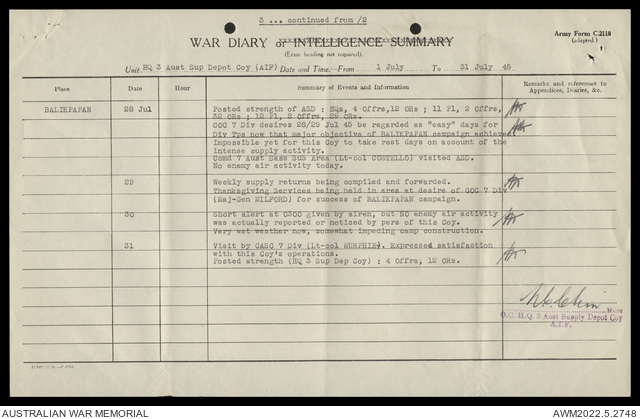 3 ... continued from /2
Army Form C.2118
(adapted.)
WAR DIARY or INTELLIGENCE SUMMARY
(Erase heading not required).
Unit HQ 3 Aust Sup Depot Coy (AIF) Date and Time.—From 1 July To 31 July 45
Place Date Hour Summary of Events and Information Remarks and references to Appendices, Diaries, &c.
BALIKPAPAN 28 Jul Posted strength of ASD ; HQs, 4 Offrs,12 ORs ; 11 Pl, 2 Offrs,
32 ORs ; 12 Pl, 2 Offrs, 29 ORs.
GOC 7 Div desires 28/29 Jul 45 be regarded as "easy" days for
Div Tps now that major objective of BALIKPAPAN campaign achieved
Impossible yet for this Coy to take rest days on account of the
intense supply activity.
Comd 7 Aust Base Sub Area (Lt-col COSTELLO) visited ASD.
No enemy air activity today.
29 Weekly supply returns being compiled and forwarded.
Thanksgiving Services being held in area at desire of GOC 7 Div
(Maj-Gen MILFORD) for success of BALIKPAPAN campaign.
30 Short alert at 0300 given by siren, but NO enemy air activity
was actually reported or noticed by pers of this Coy.
Very wet weather now, somewhat impeding camp construction.
31 Visit by CASC 7 Div (Lt-col MURPHIE). Expressed satisfaction
with this Coy's operations.
Posted strength (HQ 3 Sup Dep Coy) ; 4 Offrs, 12 ORs.
Major
O.C. H.Q. 3 Aust Supply Depot Coy
A.I.F.
AUSTRALIAN WAR MEMORIAL AWM2022.5.2748